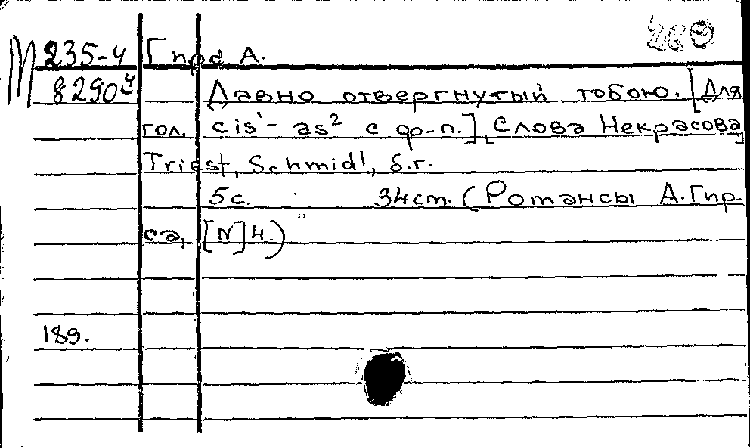 269
М 235-4 Гирс А.
8290 Давно отвергнутый тобою. [Для
гол. cis¹- as² с ф-п.] [Слова Некрасова]
Triest, Schmidl, б.г.
5с. 34 cm. (Романсы А.Гир-
са, [N] 4.)
189.